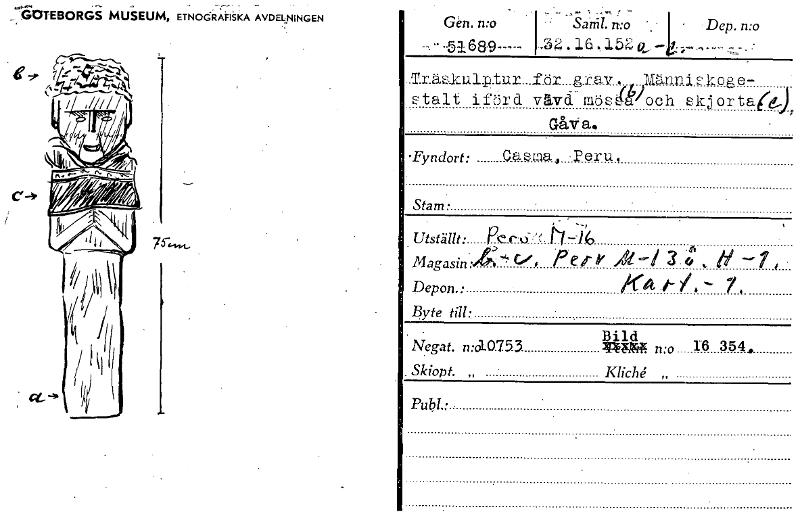 GÖTEBORGS MUSEUM, ETNOGRAFISKA AVDELNINGEN
b→
c→
75cm
a→
Gen. n:o Saml. n:o Dep. n:o
51689 32.16.152a-c.
Träskulptur för grav. Människoge-
stalt iförd vävd mössa(b)och skjorta(c),
Gåva.
Fyndort: Casma, Peru.
Stam:
Utställt: Peru M-16
Magasin: b-c. Peru M-13 H-1.
Depon.: Kart.-1.
Byte till:
Negat. n:o10753 Bild n:o 16 354.
Skiopt. „ Kliché „
Publ.: